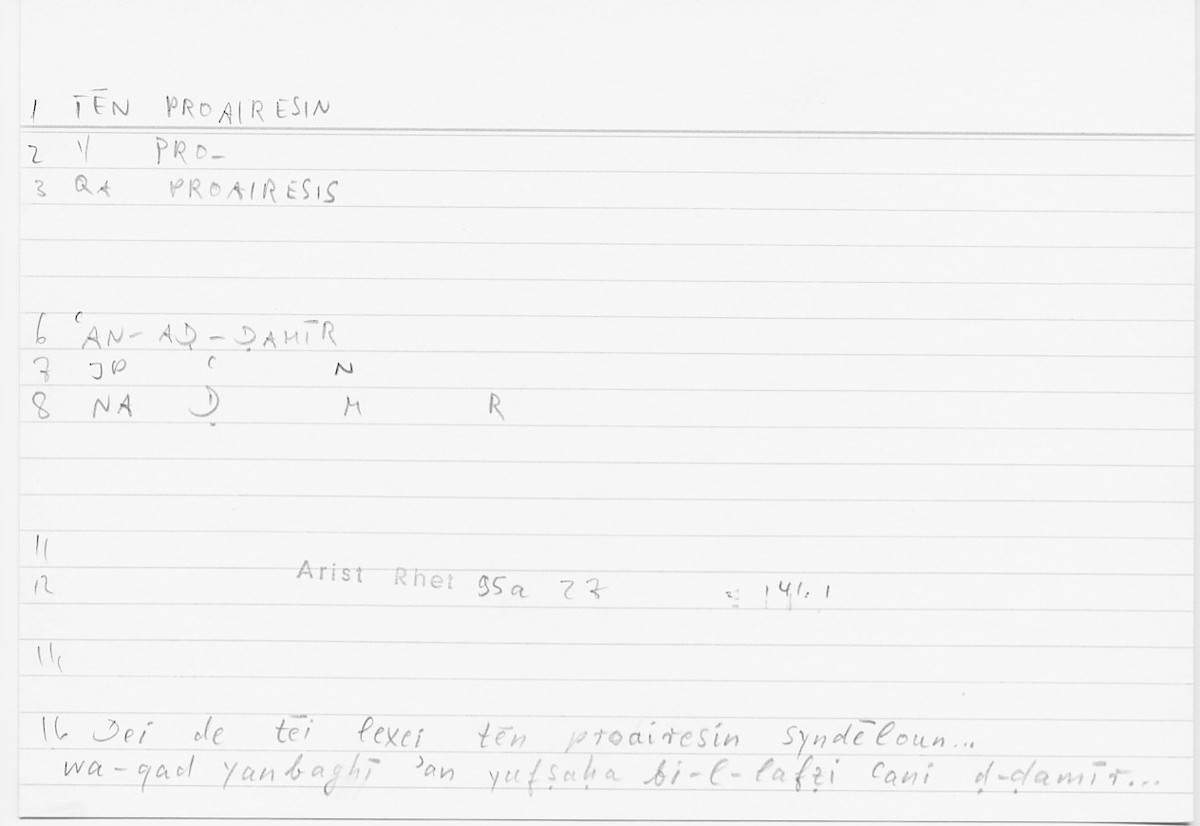 1 TĒN PROAIRESIN
2 \/ PRO-
3 QA PROAIRESIS
6 ʿAN-AḌ-ḌAMĪR
7 JP ʿ N
8 NA Ḍ M R
11
12 Arist Rhet 95a 27 = 141.1
16 Dei de tēi lexei tēn proairesin syndēloun...
wa-qad yanbaghī ʾan yufṣaḥa bi-l-lafẓi ʿani ḍ-ḍamīr...